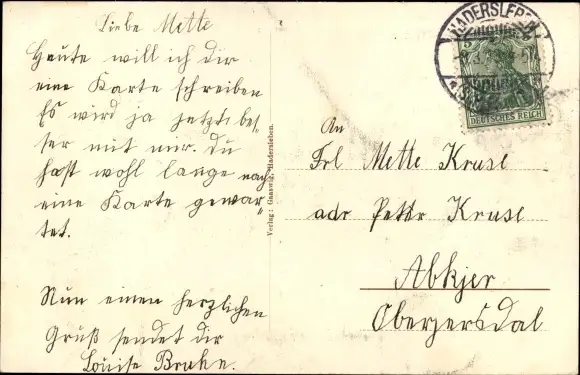 Liebe Mette
Heute will ich dir
eine Karte schreiben
Es wird ja jetzt bes
ser mit mir. du
hast wohl lange nach
eine Karte gewar
tet.
Nun einen herzlichen
Gruß sendet dir
Louise Bruhn.
Verlag: Gaaswig, Hadersleben.
HADERSLEB
DEUTSCHES REICH
An
Frl Mette Kruse
adr Peter Kruse
Abkjer
Oberjersdal